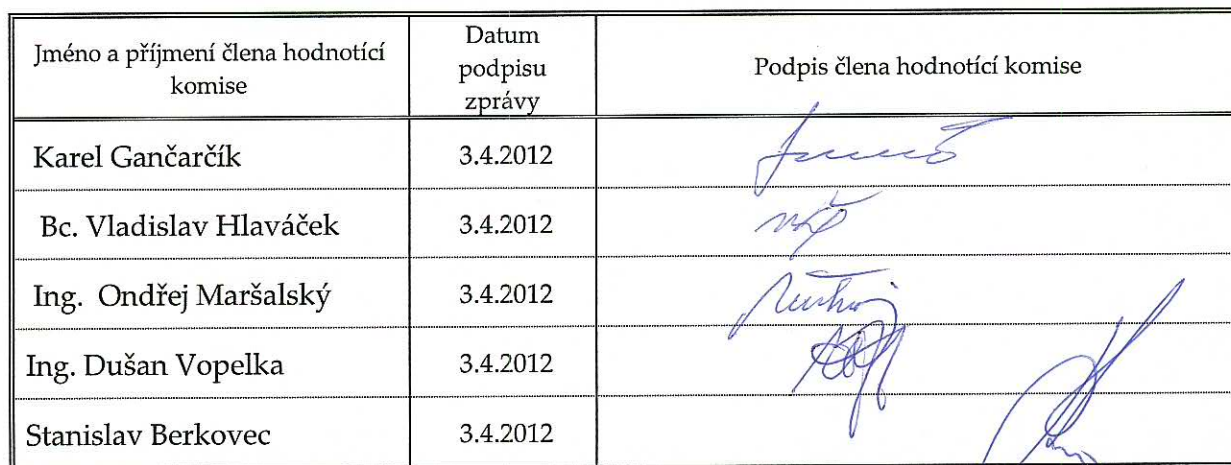 Jméno a příjmení člena hodnotící
komise
Datum
podpisu
zprávy
Podpis člena hodnotící komise
Karel Gančarčík
3.4.2012
Bc. Vladislav Hlaváček
3.4.2012
Ing. Ondřej Maršalský
3.4.2012
Ing. Dušan Vopelka
3.4.2012
Stanislav Berkovec
3.4.2012